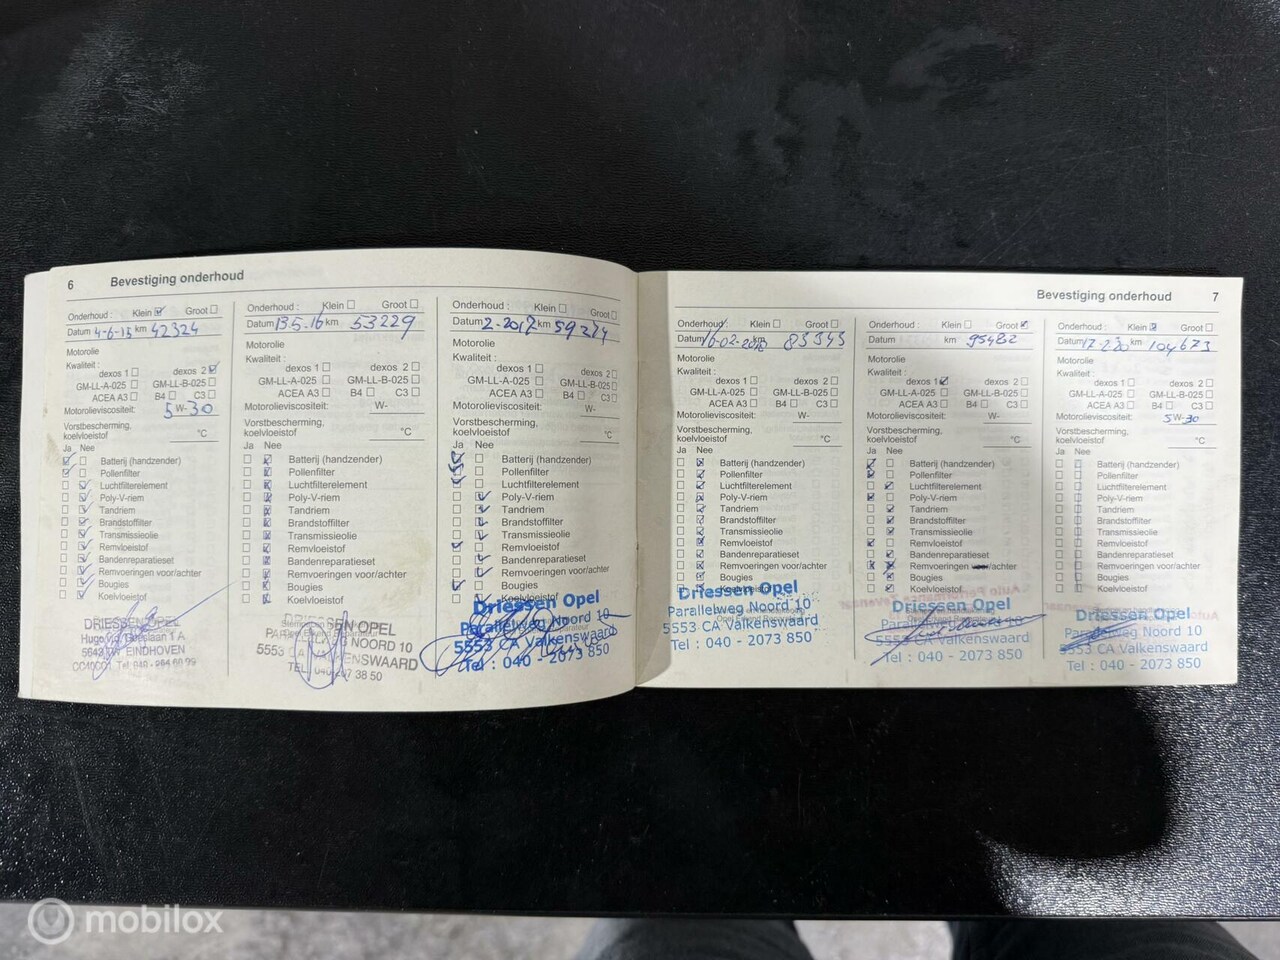 6 Bevestiging onderhoud
Onderhoud : Klein Groot
Datum 4-6-15 km 42324
Motorolie
Kwaliteit :
dexos 1 dexos 2
GM-LL-A-025 GM-LL-B-025
ACEA A3 B4 C3
Motorolieviscositeit: 5 W-30
Vorstbescherming,
koelvloeistof °C
Ja Nee
Batterij (handzender)
Pollenfilter
Luchtfilterelement
Poly-V-riem
Tandriem
Brandstoffilter
Transmissieolie
Remvloeistof
Bandenreparatieset
Remvoeringen voor/achter
Bougies
Koelvloeistof
DRIESSEN OPEL
EINDHOVEN
Onderhoud : Klein Groot
Datum 13-5-16 km 53229
Motorolie
Kwaliteit :
dexos 1 dexos 2
GM-LL-A-025 GM-LL-B-025
ACEA A3 B4 C3
Motorolieviscositeit: W-
Vorstbescherming,
koelvloeistof °C
Ja Nee
Batterij (handzender)
Pollenfilter
Luchtfilterelement
Poly-V-riem
Tandriem
Brandstoffilter
Transmissieolie
Remvloeistof
Bandenreparatieset
Remvoeringen voor/achter
Bougies
Koelvloeistof
DRIESSEN OPEL
NOORD 10
5553
TEL
Onderhoud : Klein Groot
Datum 2-2017 km
Motorolie
Kwaliteit :
dexos 1 dexos 2
GM-LL-A-025 GM-LL-B-025
ACEA A3 B4 C3
Motorolieviscositeit: W-
Vorstbescherming,
koelvloeistof °C
Ja Nee
Batterij (handzender)
Pollenfilter
Luchtfilterelement
Poly-V-riem
Tandriem
Brandstoffilter
Transmissieolie
Remvloeistof
Bandenreparatieset
Remvoeringen voor/achter
Bougies
Koelvloeistof
Driessen Opel
Parallelweg Noord 10
5553 CA Valkenswaard
Tel : 040 - 2073 850
Bevestiging onderhoud 7
Onderhoud : Klein Groot
Datum 16-02-2018 km 83343
Motorolie
Kwaliteit :
dexos 1 dexos 2
GM-LL-A-025 GM-LL-B-025
ACEA A3 B4 C3
Motorolieviscositeit: W-
Vorstbescherming,
koelvloeistof °C
Ja Nee
Batterij (handzender)
Pollenfilter
Luchtfilterelement
Poly-V-riem
Tandriem
Brandstoffilter
Transmissieolie
Remvloeistof
Bandenreparatieset
Remvoeringen voor/achter
Bougies
Koelvloeistof
Driessen Opel
Parallelweg Noord 10
5553 CA Valkenswaard
Tel : 040 - 2073 850
Onderhoud : Klein Groot
Datum km 95482
Motorolie
Kwaliteit :
dexos 1 dexos 2
GM-LL-A-025 GM-LL-B-025
ACEA A3 B4 C3
Motorolieviscositeit: W-
Vorstbescherming,
koelvloeistof °C
Ja Nee
Batterij (handzender)
Pollenfilter
Luchtfilterelement
Poly-V-riem
Tandriem
Brandstoffilter
Transmissieolie
Remvloeistof
Bandenreparatieset
Remvoeringen voor/achter
Bougies
Koelvloeistof
Driessen Opel
Parallelweg Noord 10
5553 CA Valkenswaard
Tel : 040 - 2073 850
Onderhoud : Klein Groot
Datum km 104673
Motorolie
Kwaliteit :
dexos 1 dexos 2
GM-LL-A-025 GM-LL-B-025
ACEA A3 B4 C3
Motorolieviscositeit: 5 W-30
Vorstbescherming,
koelvloeistof °C
Ja Nee
Batterij (handzender)
Pollenfilter
Luchtfilterelement
Poly-V-riem
Tandriem
Brandstoffilter
Transmissieolie
Remvloeistof
Bandenreparatieset
Remvoeringen voor/achter
Bougies
Koelvloeistof
Driessen Opel
Parallelweg Noord 10
5553 CA Valkenswaard
Tel : 040 - 2073 850
mobilox